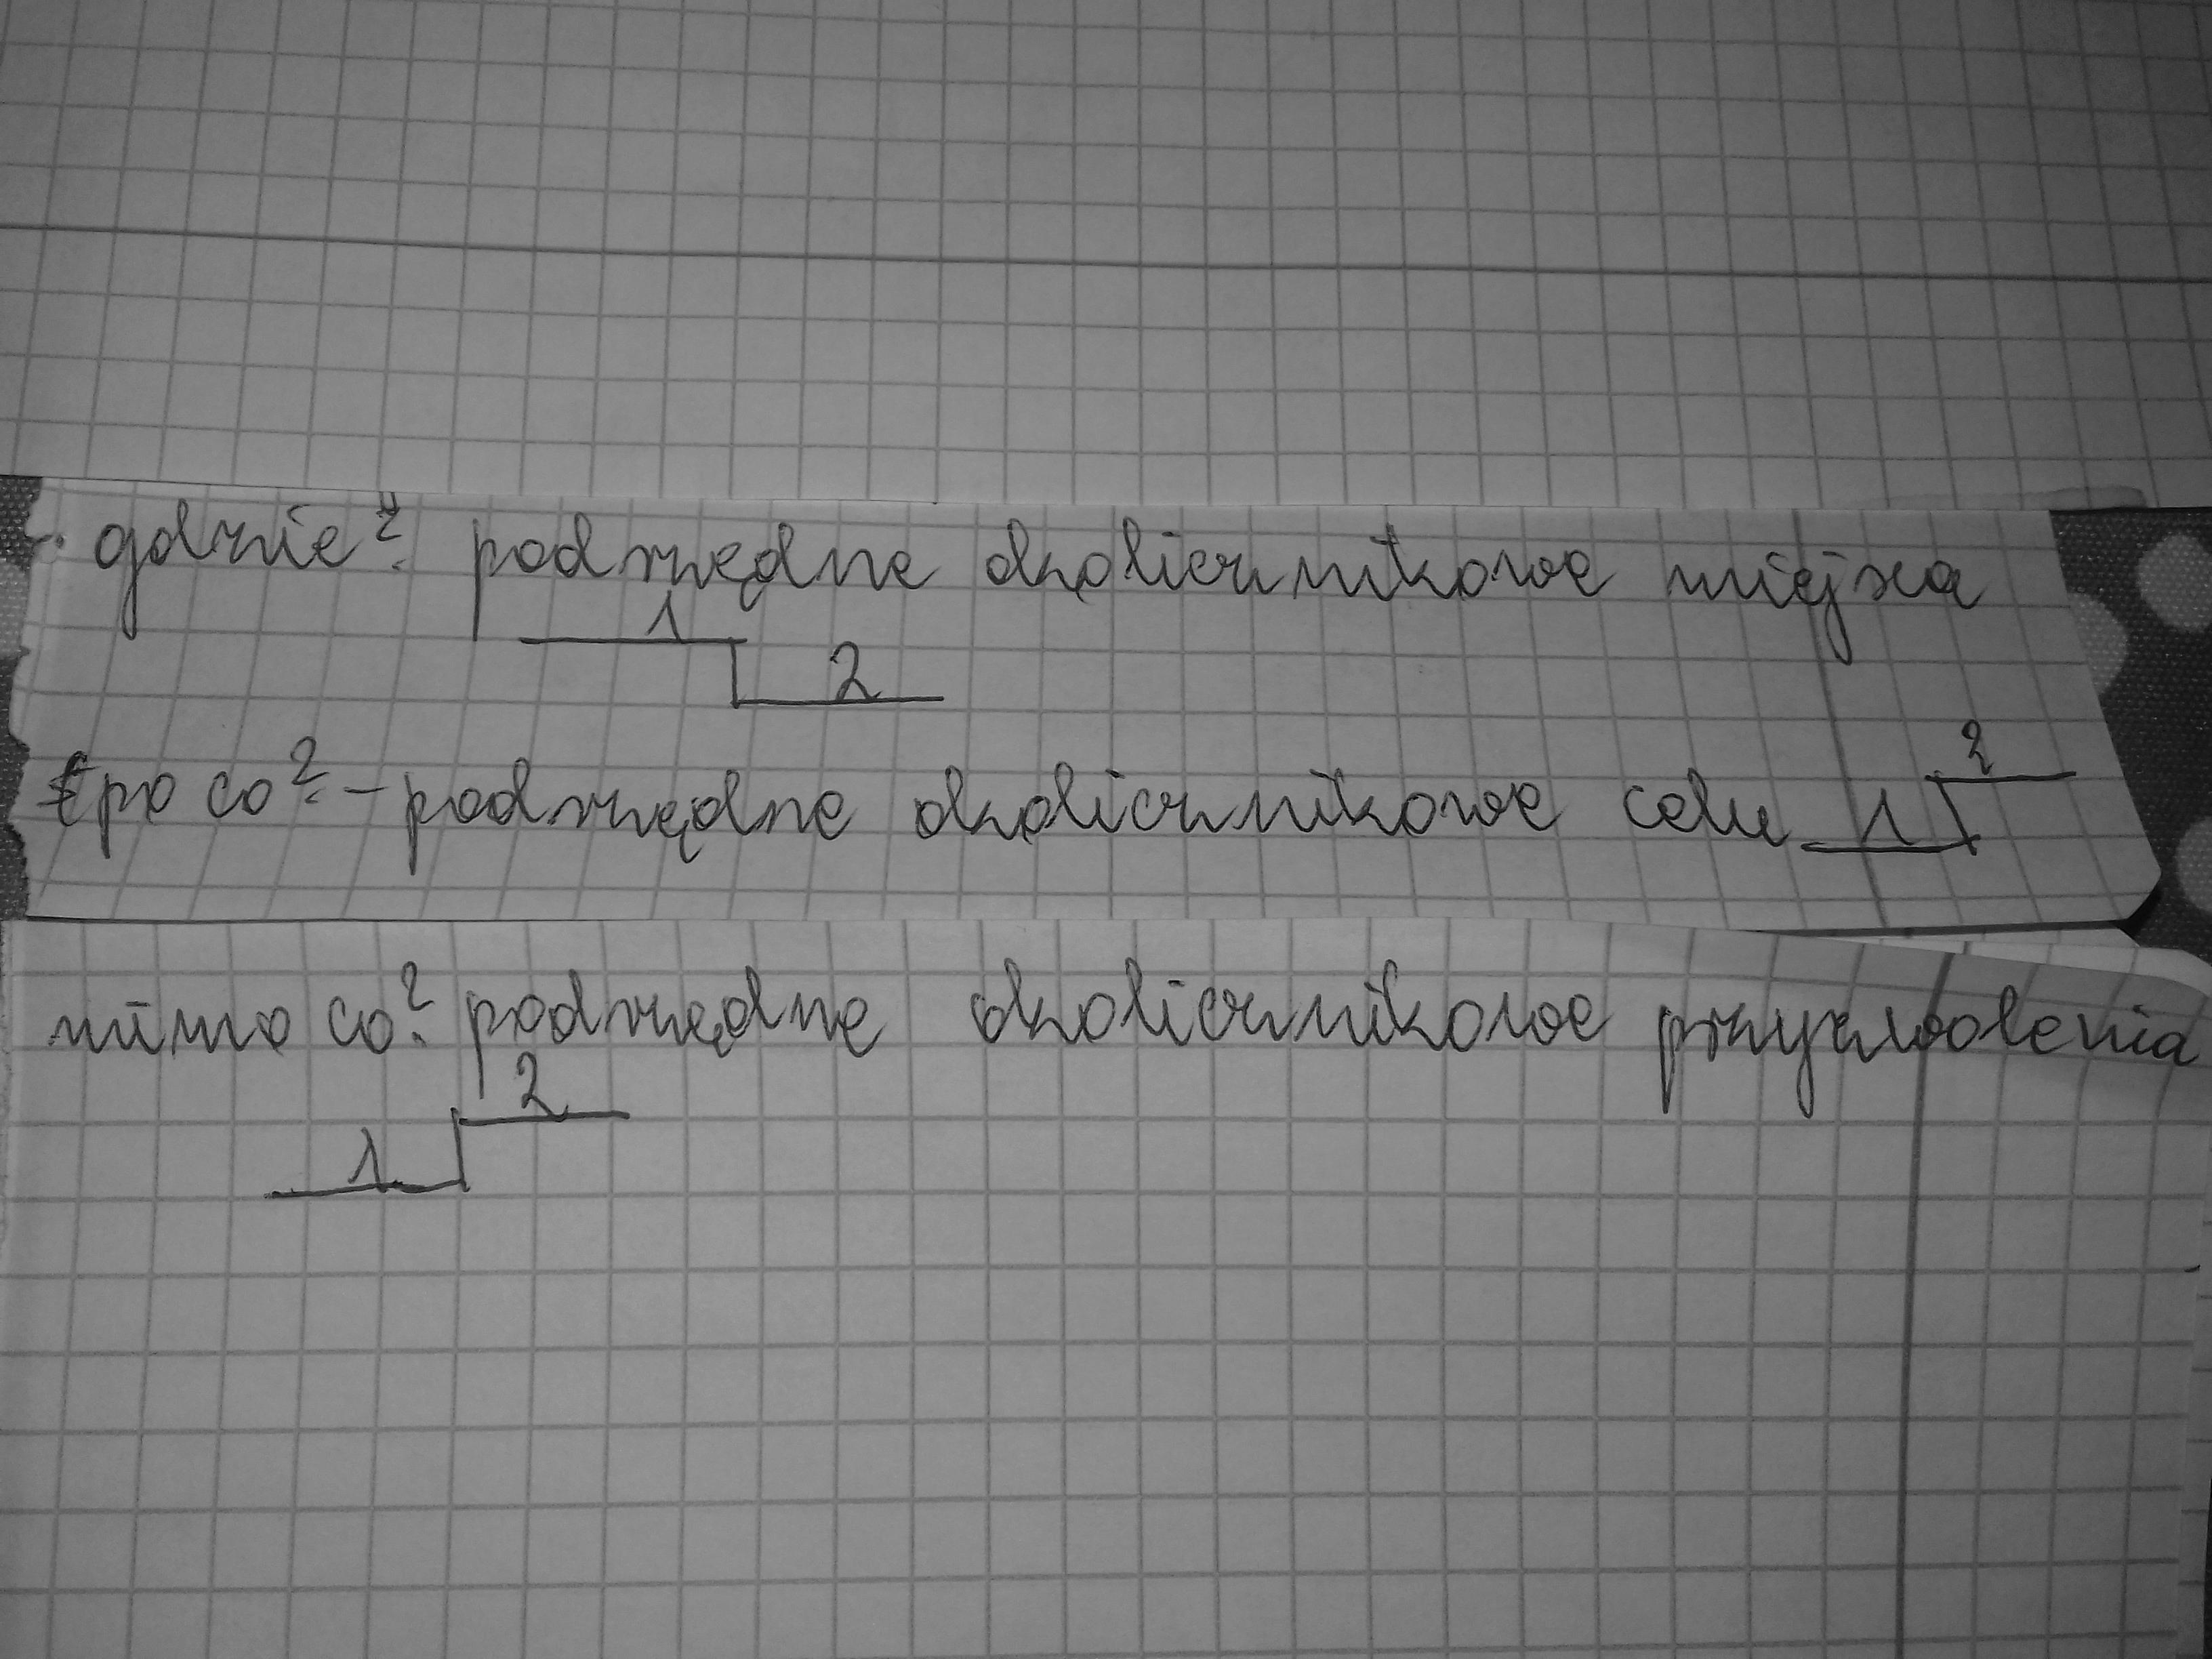 gdzie? podrzędne okolicznikowe miejsca
1
2
po co? - podrzędne okolicznikowe celu 1 2
mimo co? podrzędne okolicznikowe przyzwolenia
2
1